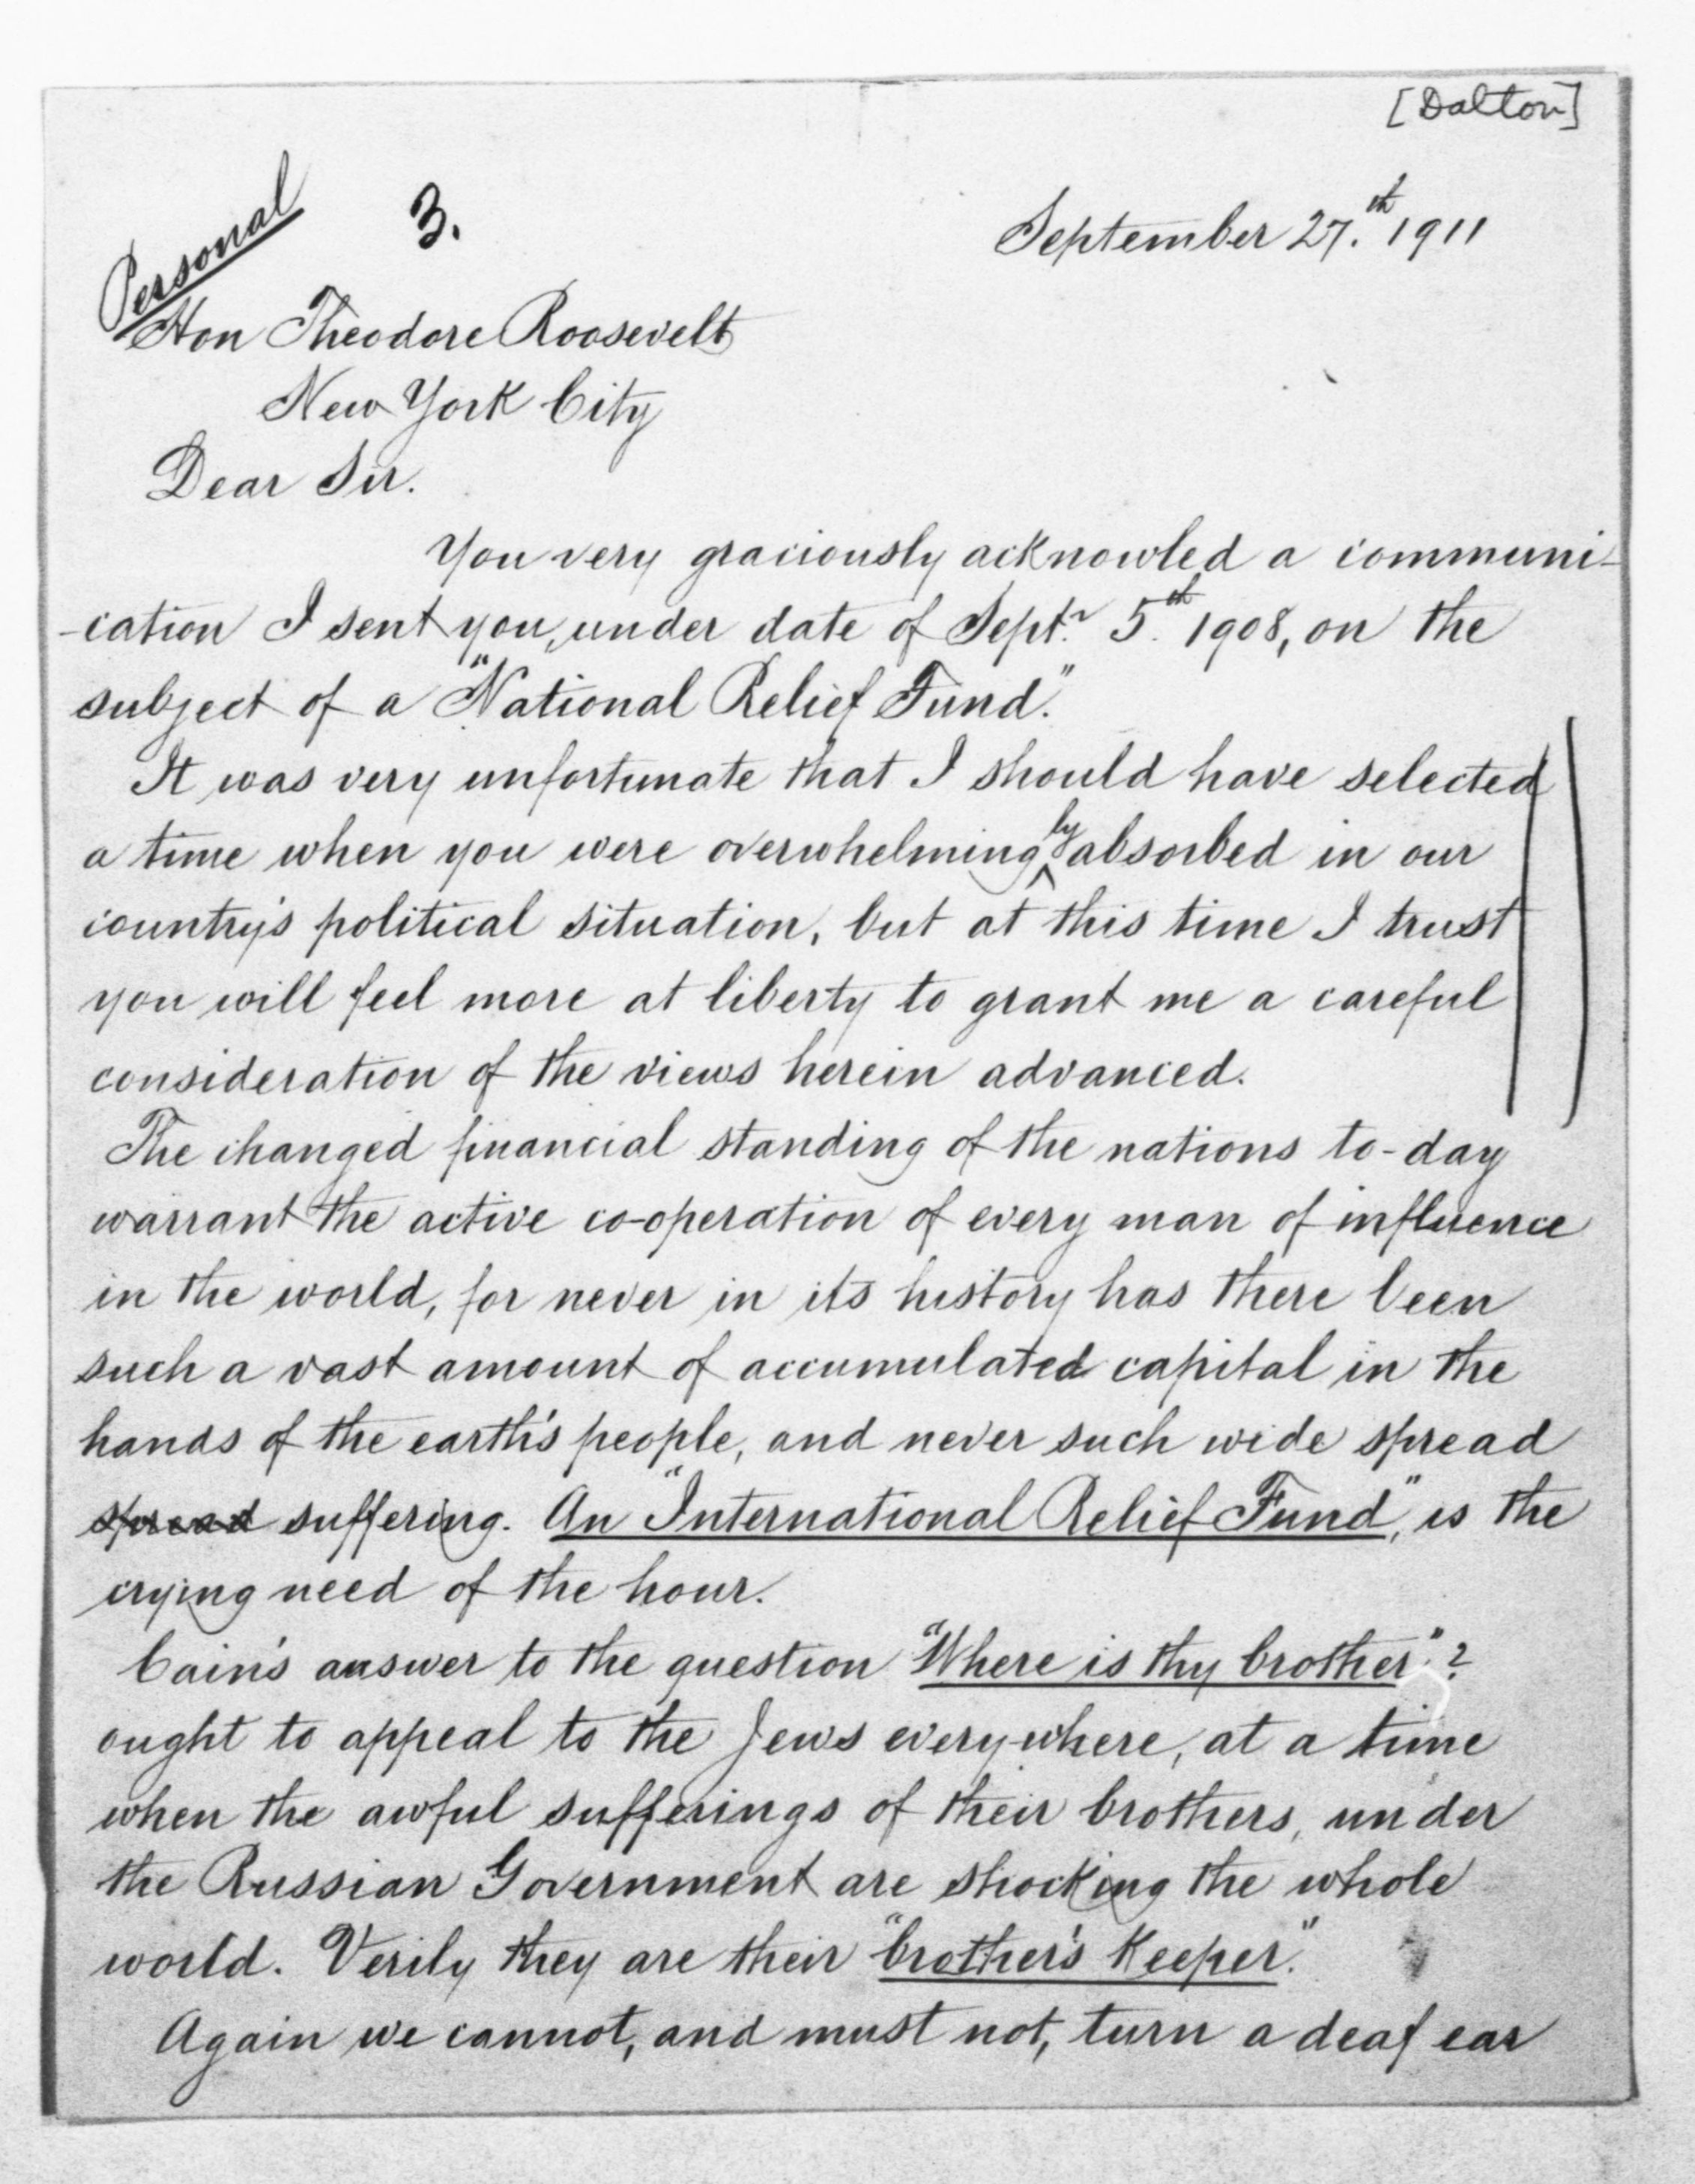 [Dalton]
Personal
3.
September 27.th 1911
Hon Theodore Roosevelt
New York City
Dear Sir.
You very graciously acknowled a communi-
-cation I sent you, under date of Septr. 5.th 1908, on the
subject of a "National Relief Fund."
It was very unfortunate that I should have selected
a time when you were overwhelmingly absorbed in our
country's political situation, but at this time I trust
you will feel more at liberty to grant me a careful
consideration of the views herein advanced.
The changed financial standing of the nations to-day
warrant the active co-operation of every man of influence
in the world, for never in its history has there been
such a vast amount of accumulated capital in the
hands of the earth's people, and never such wide spread
spread suffering. An "International Relief Fund", is the
crying need of the hour.
Cain's answer to the question "Where is thy brother"?
ought to appeal to the Jews everywhere, at a time
when the awful sufferings of their brothers, under
the Russian Government are shocking the whole
world. Verily they are their "brother's Keeper."
Again we cannot, and must not, turn a deaf ear